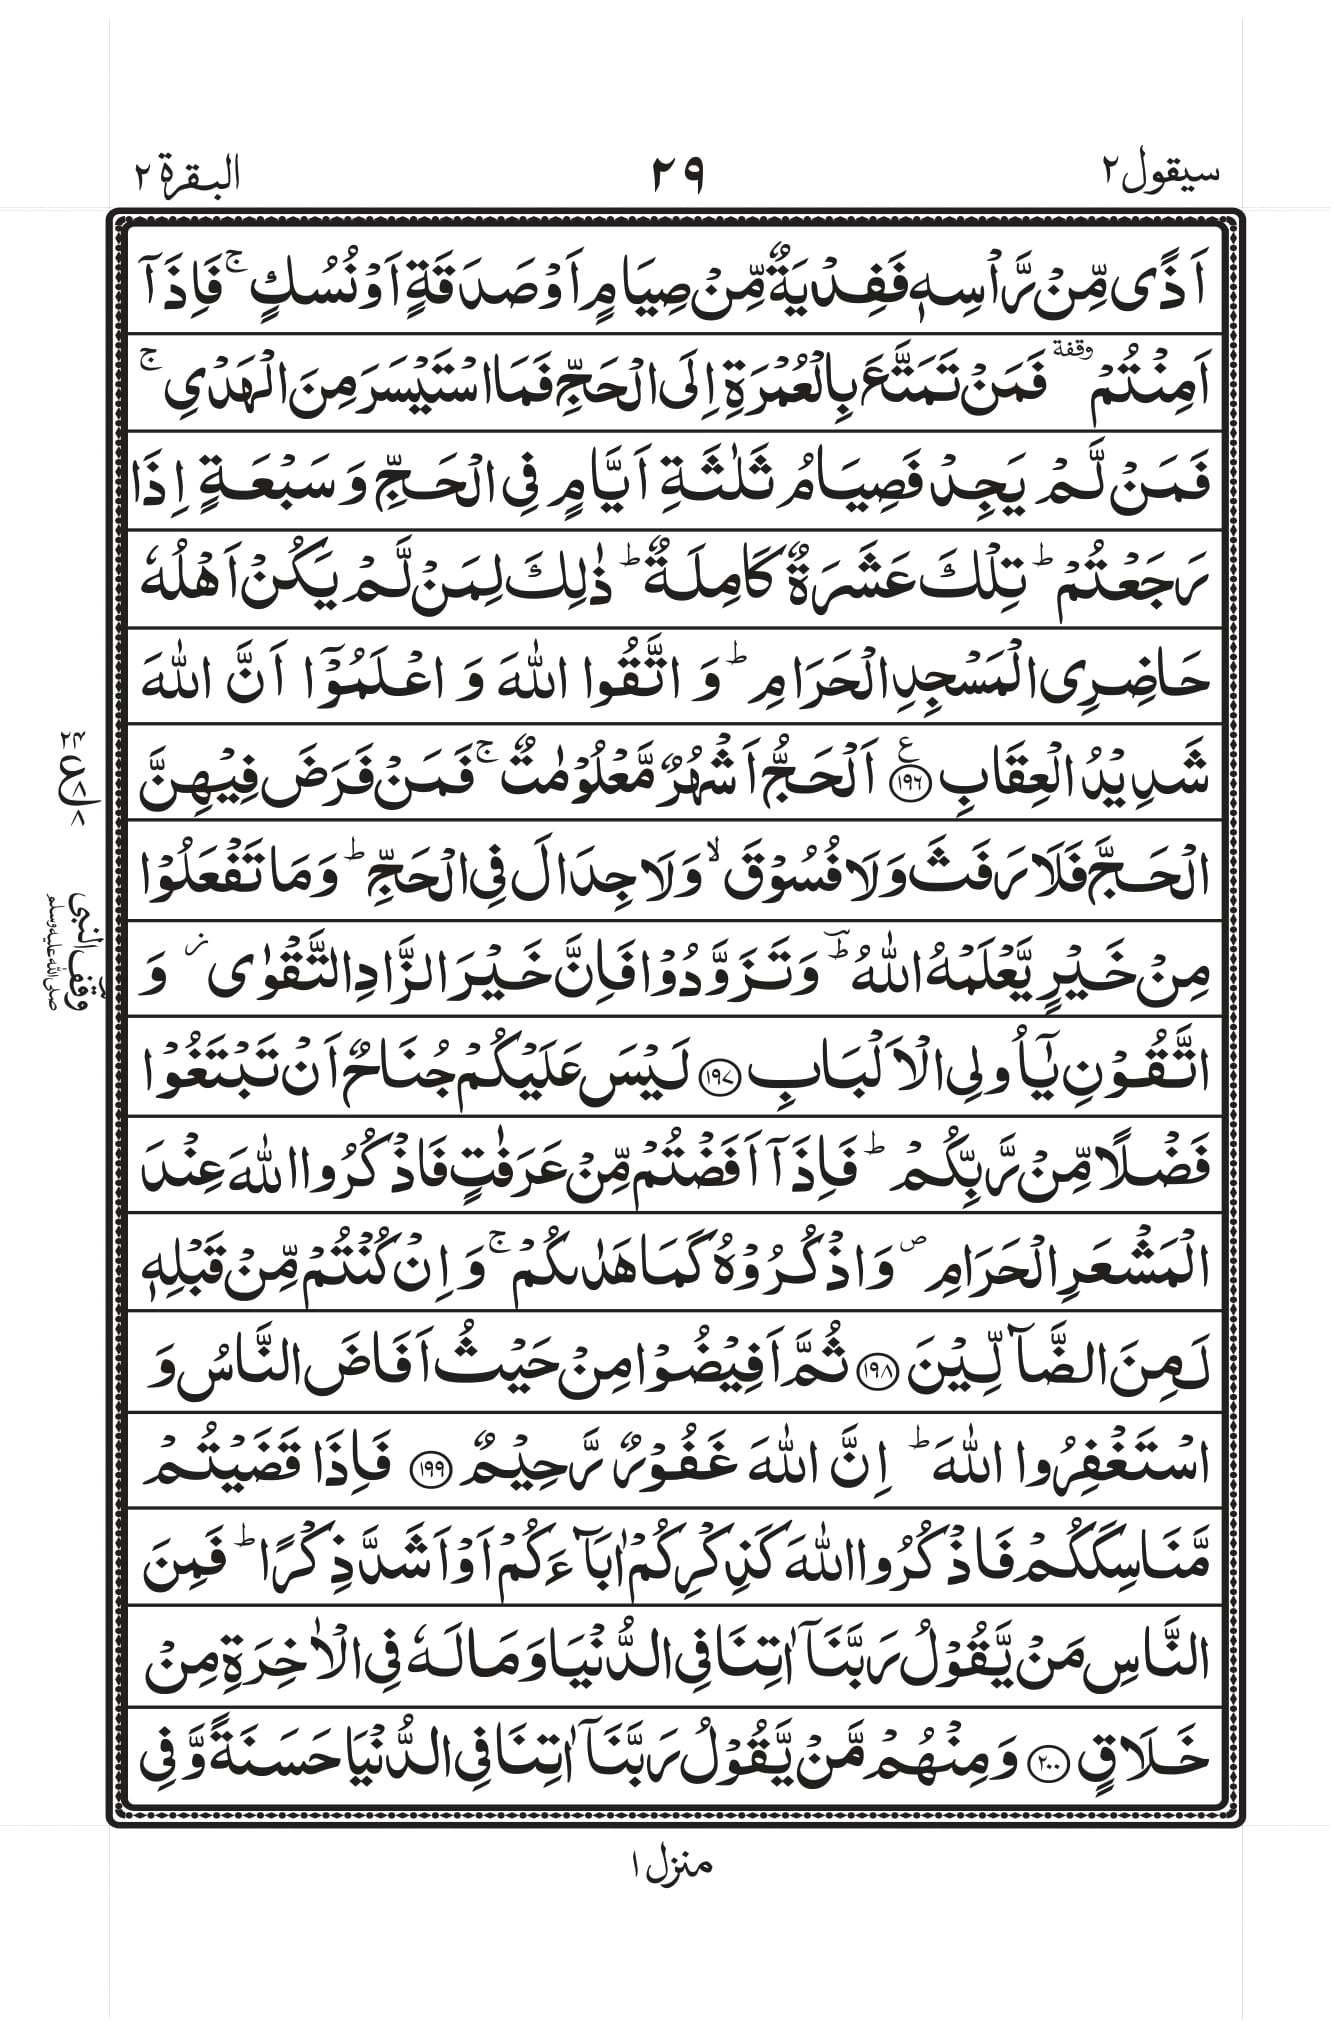 سيقول ٢
٢٩
البقرة ٢
اَذًى مِّنْ رَّاْسِهٖ فَفِدْيَةٌ مِّنْ صِيَامٍ اَوْ صَدَقَةٍ اَوْ نُسُكٍ ۚ فَاِذَاۤ
اَمِنْتُمْ ٝ وقفة فَمَنْ تَمَتَّعَ بِالْعُمْرَةِ اِلَى الْحَجِّ فَمَا اسْتَيْسَرَ مِنَ الْهَدْيِ ۚ
فَمَنْ لَّمْ يَجِدْ فَصِيَامُ ثَلٰثَةِ اَيَّامٍ فِي الْحَجِّ وَ سَبْعَةٍ اِذَا
رَجَعْتُمْ ؕ تِلْكَ عَشَرَةٌ كَامِلَةٌ ؕ ذٰلِكَ لِمَنْ لَّمْ يَكُنْ اَهْلُهٗ
حَاضِرِي الْمَسْجِدِ الْحَرَامِ ؕ وَ اتَّقُوا اللّٰهَ وَ اعْلَمُوْۤا اَنَّ اللّٰهَ
شَدِيْدُ الْعِقَابِ ﴿١٩٦﴾ ع اَلْحَجُّ اَشْهُرٌ مَّعْلُوْمٰتٌ ۚ فَمَنْ فَرَضَ فِيْهِنَّ
الْحَجَّ فَلَا رَفَثَ وَلَا فُسُوْقَ ۙ وَلَا جِدَالَ فِي الْحَجِّ ؕ وَمَا تَفْعَلُوْا
مِنْ خَيْرٍ يَّعْلَمْهُ اللّٰهُ ؕ وَتَزَوَّدُوْا فَاِنَّ خَيْرَ الزَّادِ التَّقْوٰى ز وَ
اتَّقُوْنِ يٰۤاُولِي الْاَلْبَابِ ﴿١٩٧﴾ لَيْسَ عَلَيْكُمْ جُنَاحٌ اَنْ تَبْتَغُوْا
فَضْلًا مِّنْ رَّبِّكُمْ ؕ فَاِذَاۤ اَفَضْتُمْ مِّنْ عَرَفٰتٍ فَاذْكُرُوا اللّٰهَ عِنْدَ
الْمَشْعَرِ الْحَرَامِ ص وَاذْكُرُوْهُ كَمَا هَدٰىكُمْ ۚ وَ اِنْ كُنْتُمْ مِّنْ قَبْلِهٖ
لَمِنَ الضَّآلِّيْنَ ﴿١٩٨﴾ ثُمَّ اَفِيْضُوْا مِنْ حَيْثُ اَفَاضَ النَّاسُ وَ
اسْتَغْفِرُوا اللّٰهَ ؕ اِنَّ اللّٰهَ غَفُوْرٌ رَّحِيْمٌ ﴿١٩٩﴾ فَاِذَا قَضَيْتُمْ
مَّنَاسِكَكُمْ فَاذْكُرُوا اللّٰهَ كَذِكْرِكُمْ اٰبَآءَكُمْ اَوْ اَشَدَّ ذِكْرًا ؕ فَمِنَ
النَّاسِ مَنْ يَّقُوْلُ رَبَّنَاۤ اٰتِنَا فِي الدُّنْيَا وَمَا لَهٗ فِي الْاٰخِرَةِ مِنْ
خَلَاقٍ ﴿٢٠٠﴾ وَمِنْهُمْ مَّنْ يَّقُوْلُ رَبَّنَاۤ اٰتِنَا فِي الدُّنْيَا حَسَنَةً وَّ فِي
٢٤
ع
٨
٨
وقف النبى
صلى الله عليه وسلم
منزل ١